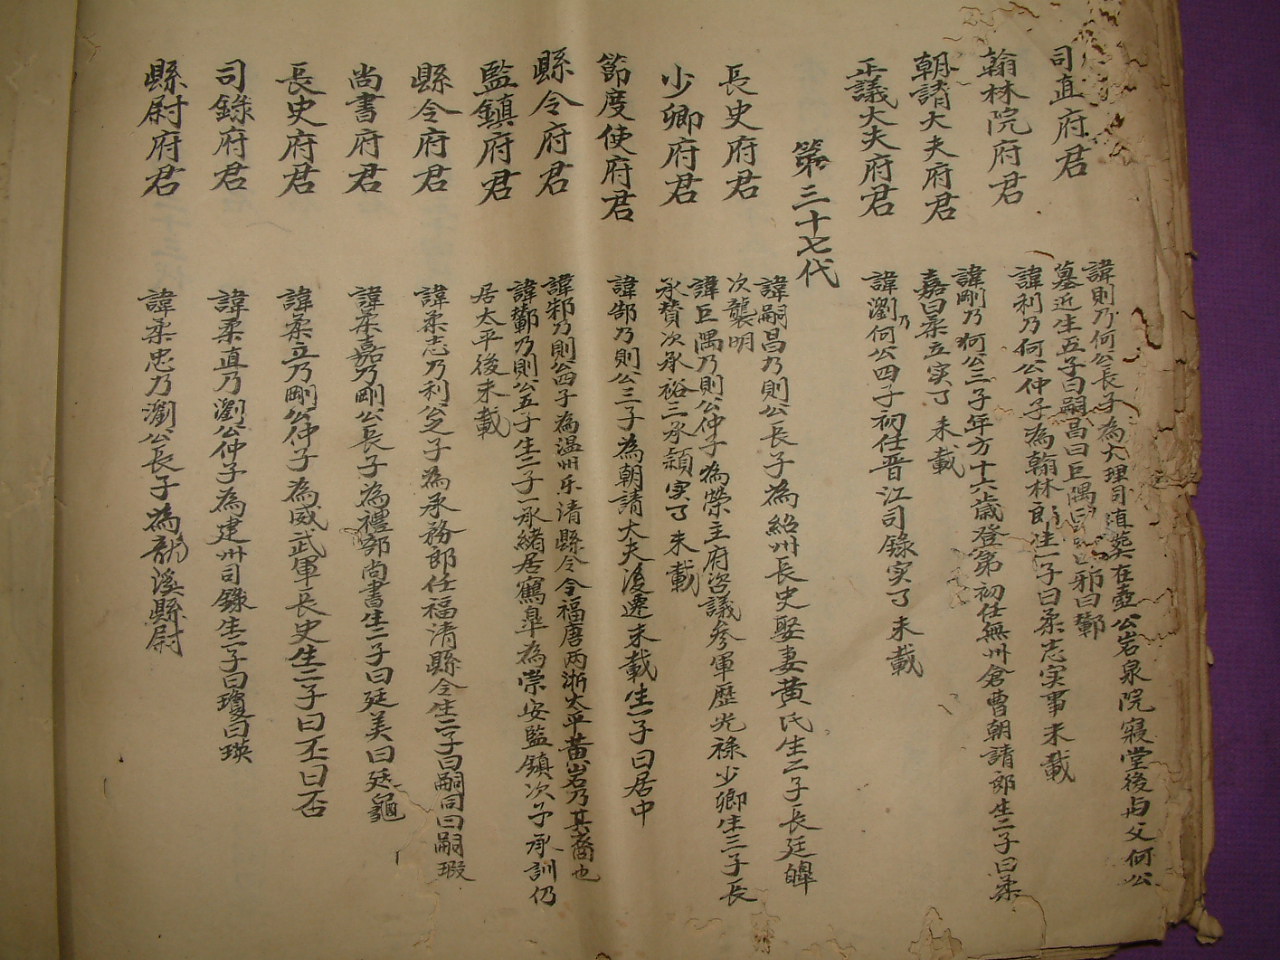 司直府君
諱則乃何公長子為大理司直葬在壺公岩泉院寢堂後与父何公
墓近生五子曰嗣昌曰巨隅曰 曰邦曰鄿
翰林院府君
諱利乃何公仲子為翰林郎生一子曰柔志实事未載
朝請大夫府君
諱剛乃何公三子年方十六歲登第初任無州倉曹朝請郎生二子曰柔
嘉曰柔立实了未載
正議大夫府君
諱瀏乃何公四子初任晋江司錄实了未載
第三十七代
長史府君
諱嗣昌乃則公長子為紹州長史娶妻黄氏生二子長廷皥
次襲明
少卿府君
諱巨隅乃則公仲子為榮主府咨議參軍歷光祿少卿生三子長
承賛次承裕三承頴实了未載
節度使府君
諱郜乃則公三子為朝請大夫後遷未載生一子曰居中
縣令府君
諱邦乃則公四子為温州乐清縣令令福唐两浙太平黄岩乃其裔也
監鎮府君
諱鄿乃則公五子生二子一承緒居鶴皐為崇安監鎮次子承訓仍
居太平後未載
縣令府君
諱柔志乃利公之子為承務郎任福清縣令生二子曰嗣同曰嗣瑕
尚書府君
諱柔嘉乃剛公長子為禮部尚書生二子曰廷美曰廷龜
長史府君
諱柔立乃剛公仲子為威武軍長史生二子曰丕曰否
司錄府君
諱柔直乃瀏公仲子為建州司錄生二子曰瓊曰瑛
縣尉府君
諱柔忠乃瀏公長子為 溪縣尉